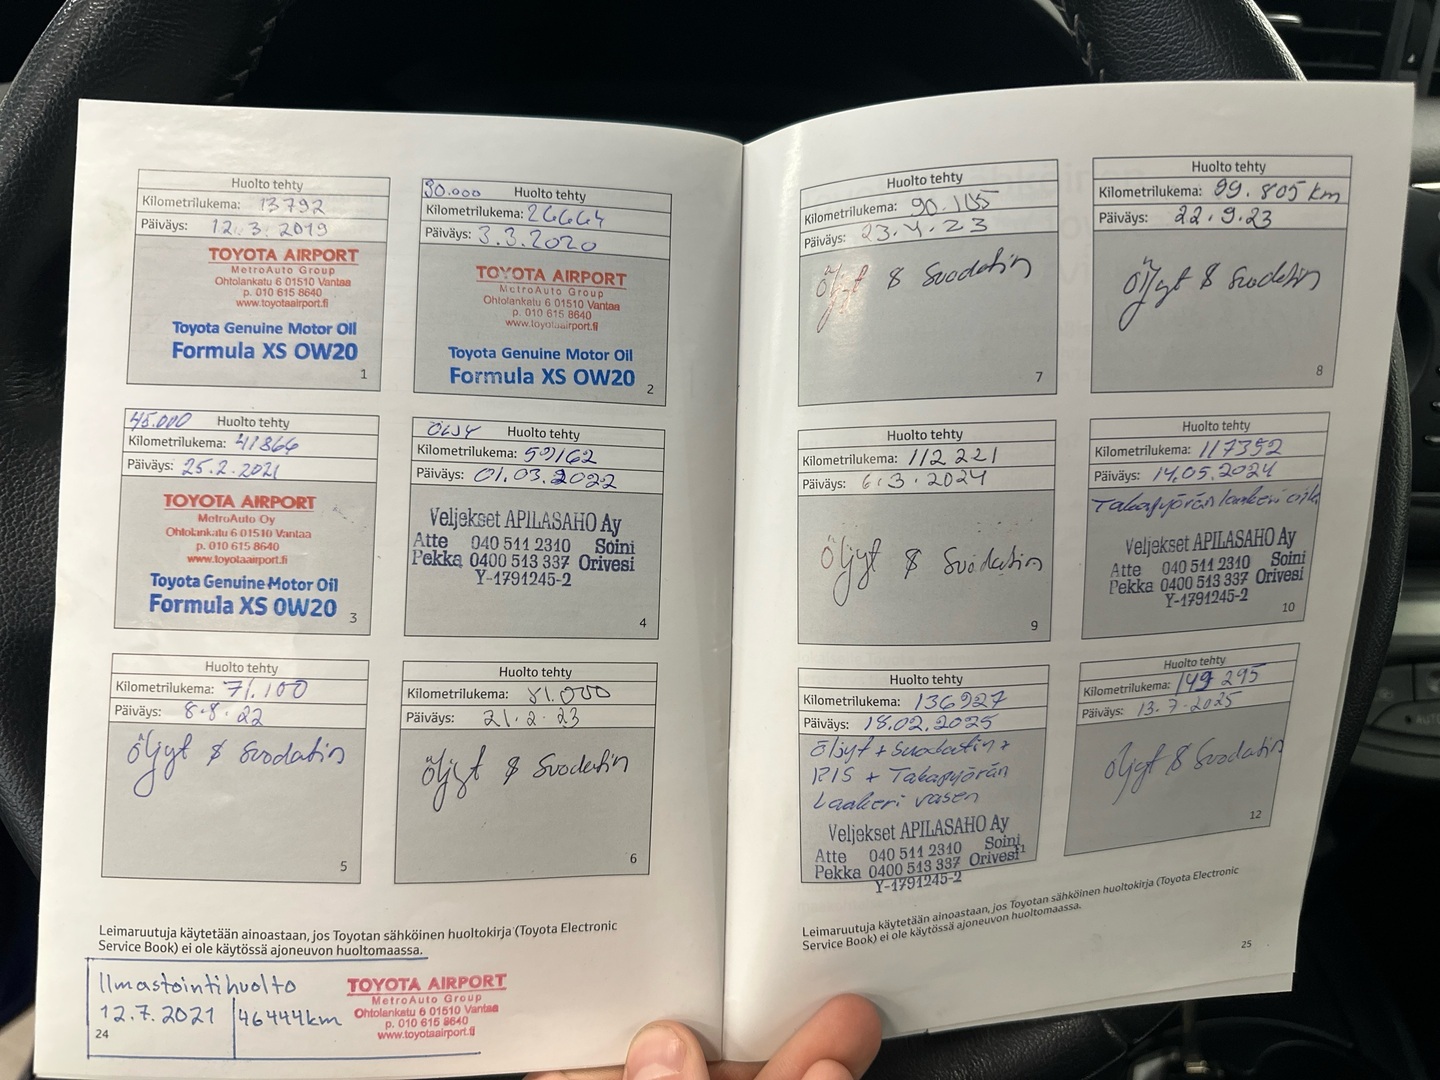 Huolto tehty
Kilometrilukema: 13792
Päiväys: 12.3.2019
TOYOTA AIRPORT
MetroAuto Group
Ohtolankatu 6 01510 Vantaa
p. 010 615 8640
www.toyotaairport.fi
Toyota Genuine Motor Oil
Formula XS OW20
1
30.000 Huolto tehty
Kilometrilukema: 26664
Päiväys: 3.3.2020
TOYOTA AIRPORT
MetroAuto Group
Ohtolankatu 6 01510 Vantaa
p. 010 615 8640
www.toyotaairport.fi
Toyota Genuine Motor Oil
Formula XS OW20
2
45.000 Huolto tehty
Kilometrilukema: 41866
Päiväys: 25.2.2021
TOYOTA AIRPORT
MetroAuto Oy
Ohtolankatu 6 01510 Vantaa
p. 010 615 8640
www.toyotaairport.fi
Toyota Genuine Motor Oil
Formula XS OW20
3
ÖLJY Huolto tehty
Kilometrilukema: 59162
Päiväys: 01.03.2022
Veljekset APILASAHO Ay
Atte 040 511 2310 Soini
Pekka 0400 513 337 Orivesi
Y-1791245-2
4
Huolto tehty
Kilometrilukema: 71.100
Päiväys: 8.8.22
Öljyt & Suodatin
5
Huolto tehty
Kilometrilukema: 81.000
Päiväys: 21.2.23
Öljyt & Suodatin
6
Leimaruutuja käytetään ainoastaan, jos Toyotan sähköinen huoltokirja (Toyota Electronic
Service Book) ei ole käytössä ajoneuvon huoltomaassa.
Ilmastointihuolto
12.7.2021 46444km
TOYOTA AIRPORT
MetroAuto Group
Ohtolankatu 6 01510 Vantaa
p. 010 615 8640
www.toyotaairport.fi
24
Huolto tehty
Kilometrilukema: 90.105
Päiväys: 23.4.23
Öljyt & Suodatin
7
Huolto tehty
Kilometrilukema: 99.805 km
Päiväys: 22.9.23
Öljyt & Suodatin
8
Huolto tehty
Kilometrilukema: 112 221
Päiväys: 6.3.2024
Öljyt & Suodatin
9
Huolto tehty
Kilometrilukema: 117352
Päiväys: 14.05.2024
Takapyörän laakeri oik
Veljekset APILASAHO Ay
Atte 040 511 2310 Soini
Pekka 0400 513 337 Orivesi
Y-1791245-2
10
Huolto tehty
Kilometrilukema: 136927
Päiväys: 18.02.2025
Öljyt + suodatin +
RIS + Takapyörän
Laakeri vasen
Veljekset APILASAHO Ay
Atte 040 511 2310 Soini
Pekka 0400 513 337 Orivesi
Y-1791245-2
11
Huolto tehty
Kilometrilukema: 149 295
Päiväys: 13.7.2025
Öljyt & Suodatin
12
Leimaruutuja käytetään ainoastaan, jos Toyotan sähköinen huoltokirja (Toyota Electronic
Service Book) ei ole käytössä ajoneuvon huoltomaassa.
25